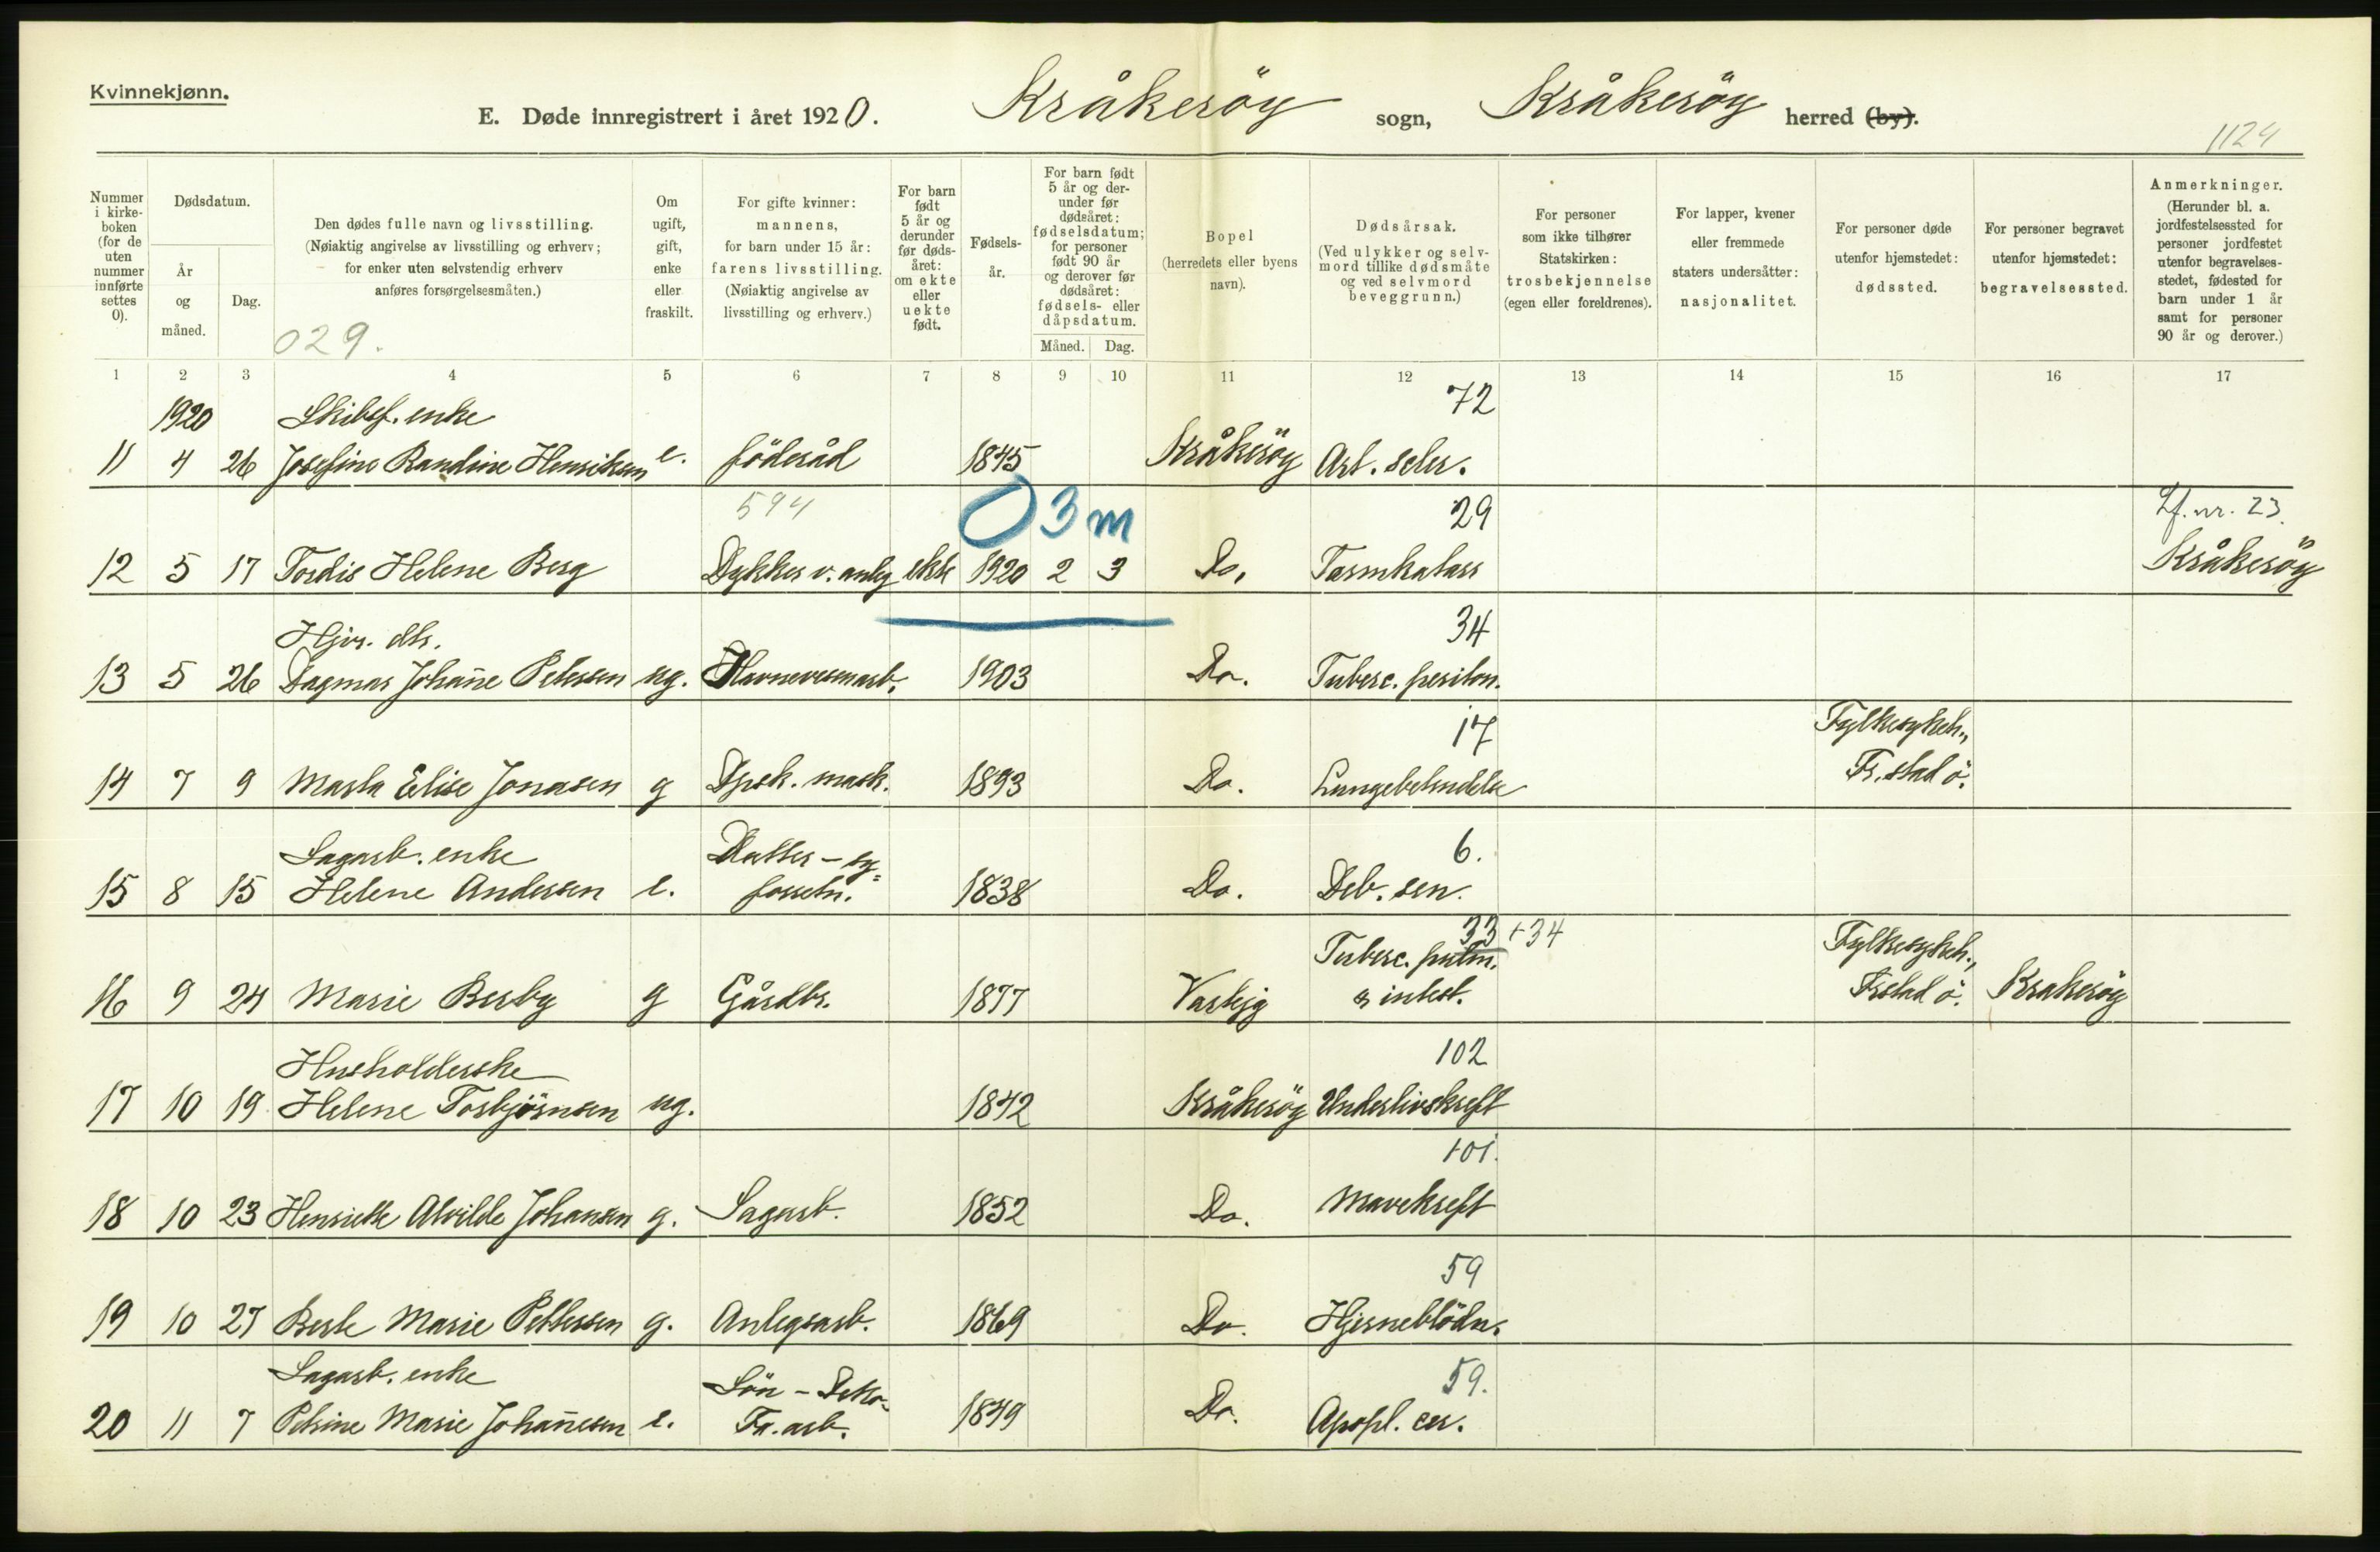 Kvinnekjønn.
E. Døde innregistrert i året 1920. Kråkeröy sogn, Kråkeröy herred (by).
1124
Nummer i kirkeboken (for de uten nummer innførte settes 0).
Dødsdatum.
År og måned.
Dag.
Den dødes fulle navn og livsstilling. (Nøiaktig angivelse av livsstilling og erhverv; for enker uten selvstendig erhverv anføres forsørgelsesmåten.)
029.
Om ugift, gift, enke eller fraskilt.
For gifte kvinner: mannens, for barn under 15 år: farens livsstilling. (Nøiaktig angivelse av livsstilling og erhverv.)
For barn født 5 år og derunder før dødsåret: om ekte eller uekte født.
Fødselsår.
For barn født 5 år og derunder før dødsåret: fødselsdatum; for personer født 90 år og derover før dødsåret: fødsels- eller dåpsdatum.
Måned. Dag.
Bopel (herredets eller byens navn).
Dødsårsak. (Ved ulykker og selvmord tillike dødsmåte og ved selvmord beveggrunn.)
For personer som ikke tilhører Statskirken: trosbekjennelse (egen eller foreldrenes).
For lapper, kvener eller fremmede staters undersåtter: nasjonalitet.
For personer døde utenfor hjemstedet: dødssted.
For personer begravet utenfor hjemstedet: begravelsessted.
Anmerkninger. (Herunder bl. a. jordfestelsessted for personer jordfestet utenfor begravelsesstedet, fødested for barn under 1 år samt for personer 90 år og derover.)
1 2 3 4 5 6 7 8 9 10 11 12 13 14 15 16 17
1920 Skibsf. enke 72
11 4 26 Josefine Randine Henriksen e. föderåd 1845 Kråkeröy Art. scler.
594 03m 29 Lf. nr. 23.
12 5 17 Tordis Helene Berg Dykker v. anleg ekte 1920 2 3 Do. Tarmkatarr Kråkeröy
Hjv. dtr. 34
13 5 26 Dagmar Johan̄e Petersen ug. Havnevesenarb. 1903 Do. Tuberc. periton.
17 Fylkesykeh.,
14 7 9 Marta Elise Jonasen g Dpsk. mask. 1893 Do. Lungebetendelse Fr.stad ö.
Sagarb. enke Datter - sy= 6.
15 8 15 Helene Andersen e. forretn. 1838 Do. Deb. sen.
33 +34
Tuberc. pulm. Fylkesykeh.,
16 9 24 Marie Berby g Gårdbr. 1877 Varteig & intest. Frstad ö. Kråkeröy
Husholderske 102
17 10 19 Helene Torbjörnsen ug. 1842 Kråkeröy Underlivskreft
101.
18 10 23 Henriette Alvilde Johansen g. Sagarb. 1852 Do. Mavekreft
59
19 10 27 Berte Marie Pettersen g. Anlegsarb. 1869 Do. Hjerneblödn.
Sagarb. enke Sön - 59.
20 11 7 Petrine Marie Johan̄esen e. Fa. arb. 1849 Do. Apopl. cer.